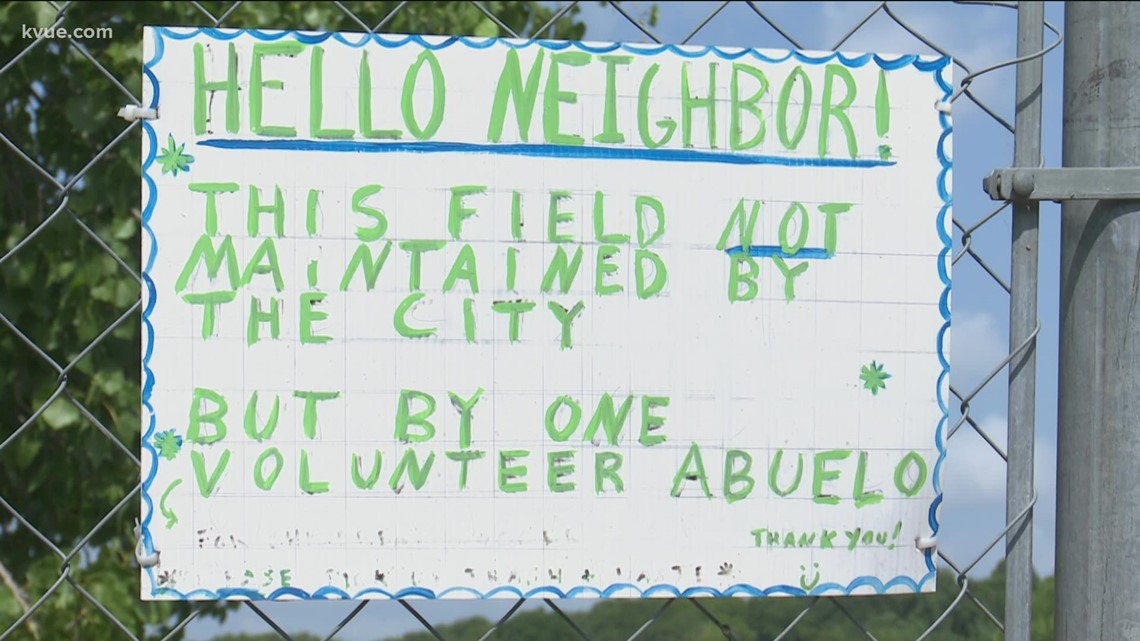 kvue.com
HELLO NEIGHBOR!
THIS FIELD NOT
MAINTAINED BY
THE CITY
BUT BY ONE
VOLUNTEER ABUELO
THANK YOU!